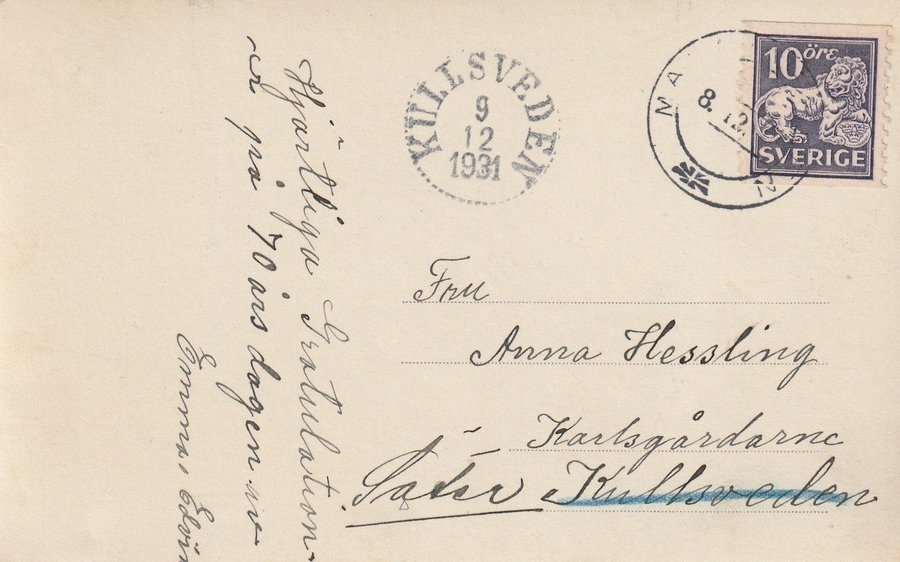 Hjärtliga Gratulation-
er på 70 årsdagen av
Emma, Edvin
KULLSVEDEN
9
12
1931
MA
8.12.
10 öre
SVERIGE
Fru
Anna Hessling
Karlsgårdarne
Säter Kullsveden